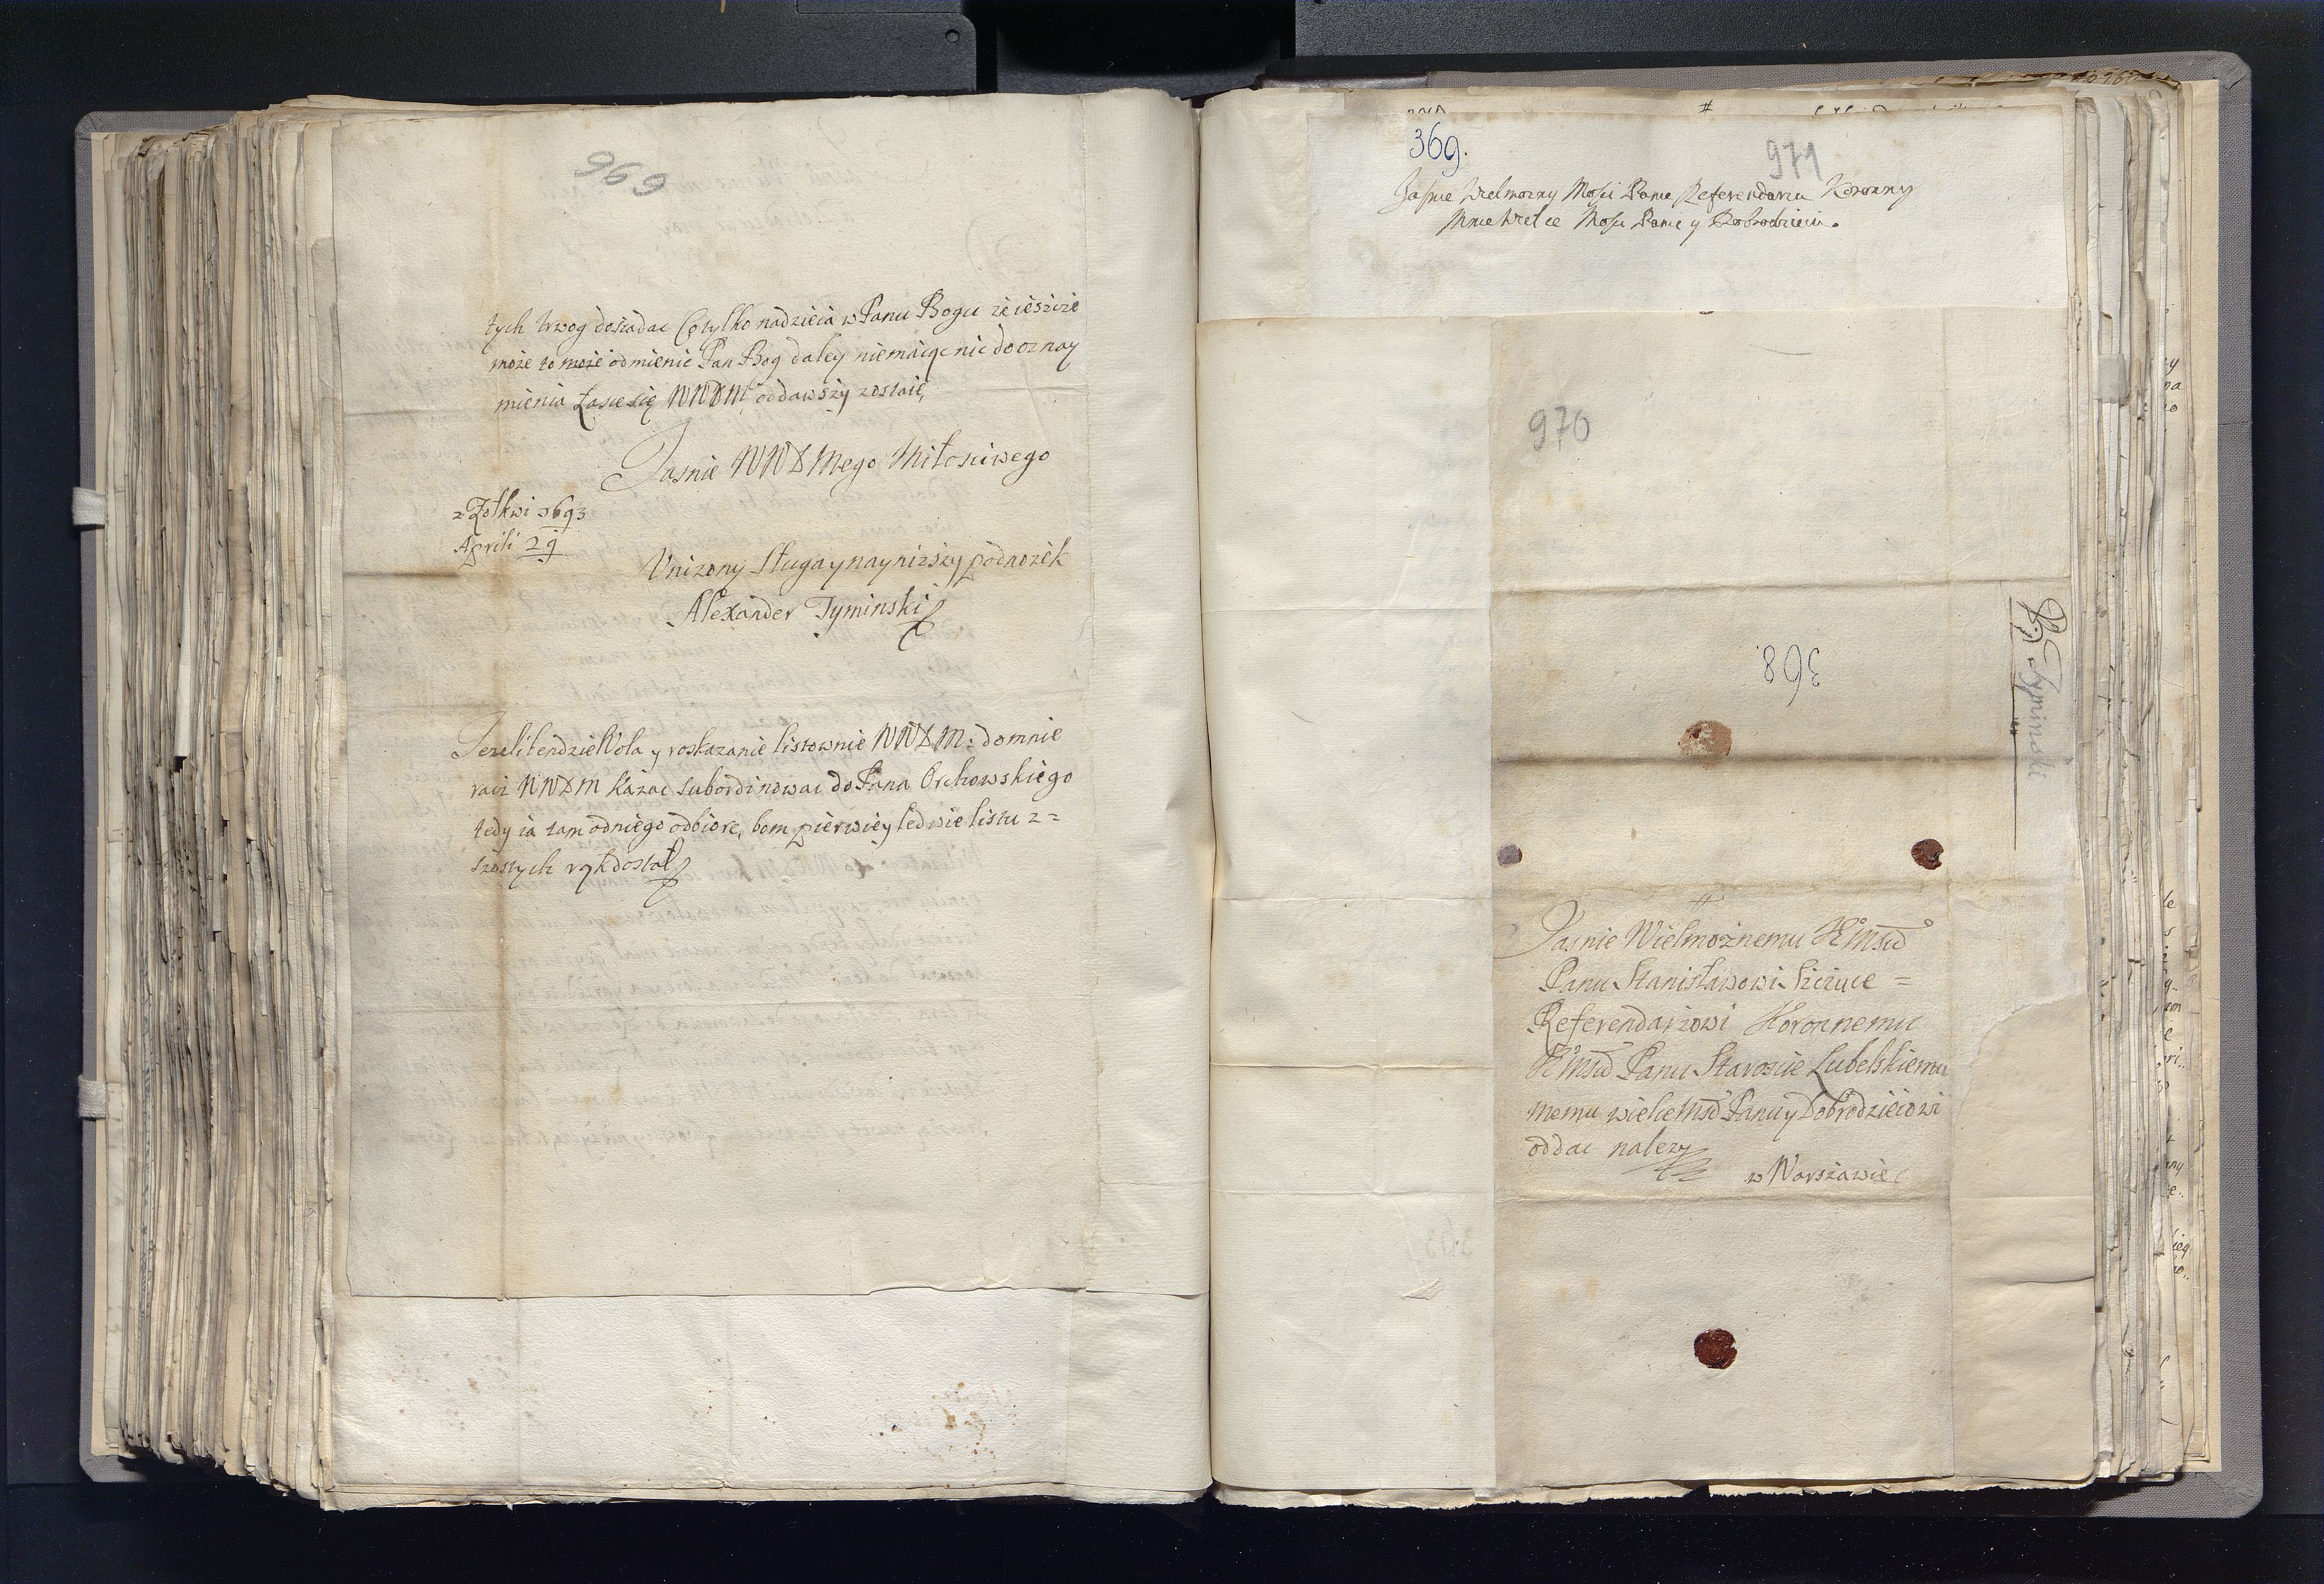 969
tych trwog dosiadac Co tylko nadzieia w Panu Bogu ze ieszcze
moze to moze odmienic Pan Bog daley niemaiąc nic do oznay
mienia Łasce się WWDM oddawszy zostaię,
Jasnie WWDMego Miłosciwego
z Zołkwi 1693
Aprili 29
Vnizony Sługa y naynizszy podnozek
Alexander Tyminski
Jezeli bendzie Wola y roskazanie listownie WWDM: do mnie
raci WWDM kazac subordinowac do Pana Orchowskiego
tedy ia tam od niego odbiore, bom pierwiey ledwie listu z=
szostych rąk dostał
369.
971
Jasnie Wielmozny Mosci Panie Referendarzu Koronny
Mnie Wielce Mosci Panie y Dobrodzieiu.
970
368.
P. Tyminski
Jasnie Wielmoznemu JE Msci
Panu Stanisławowi Sczuce =
Referendarzowi Koronnemu
JE Msci Panu Staroscie Lubelskiemu
memu wielce Msci Panu y Dobrodzieiowi
oddac nalezy
w Warszawie